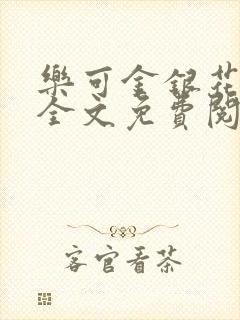 樂可金銀花
全文免費閱
客官看茶